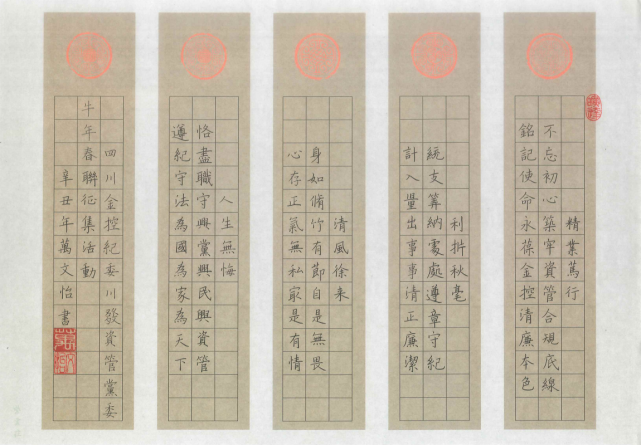 精業篤行
不忘初心築牢資管合規底線
銘記使命永葆金控清廉本色
利析秋毫
統支筭納處處遵章守紀
計入量出事事清正廉潔
清風徐来
身如脩竹有節自是無畏
心存正氣無私寂是有情
人生無悔
恪盡職守興黨興民興資管
遵紀守法為國為家為天下
四川金控紀委川發資管黨委
牛年春聯征集活動
辛丑年萬文怡書